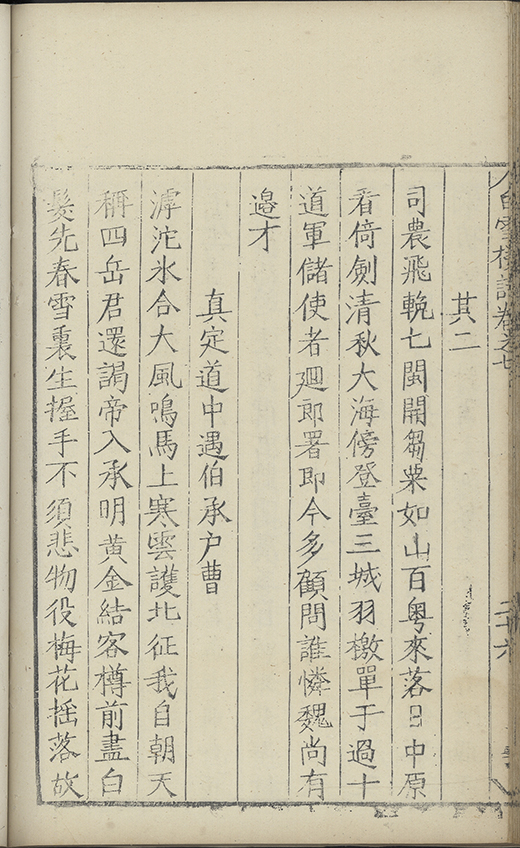 白雪樓詩卷之七
二十六
其二
司農飛輓七閩開芻粟如山百粤來落日中原
看倚劍清秋大海傍登臺三城羽檄單于過十
道軍儲使者廻郎署即今多顧問誰憐魏尚有
邉才
真定道中遇伯承户曹
滹沱氷合大風鳴馬上寒雲護北征我自朝天
稱四岳君還謁帝入承明黄金結客樽前盡白
髮先春雪裏生握手不須悲物役梅花摇落故